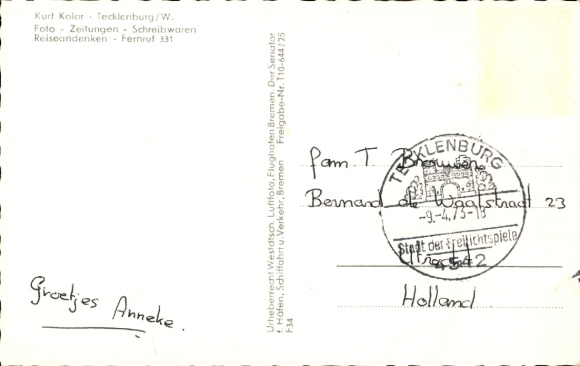 Kurt Kolar · Tecklenburg/W.
Foto - Zeitungen - Schreibwaren
Reiseandenken - Fernruf 331
Urheberrecht Westdtsch. Luftfoto, Flughafen Bremen. Der Senator
f. Häfen, Schiffahrt u. Verkehr, Bremen Freigabe-Nr. T10-644/25
F34
TECKLENBURG
-9.-4.73-18
Stadt der Freilichtspiele
4542
fam. T. Brouwers
Bernard de Waalstraat 23
Utrecht
Holland
Groetjes Anneke.